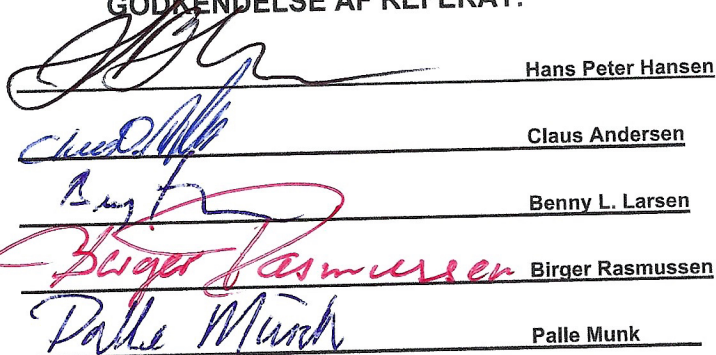 GODKENDELSE AF REFERAT:
Hans Peter Hansen
Claus Andersen
Benny L. Larsen
Birger Rasmussen Birger Rasmussen
Palle Munk Palle Munk